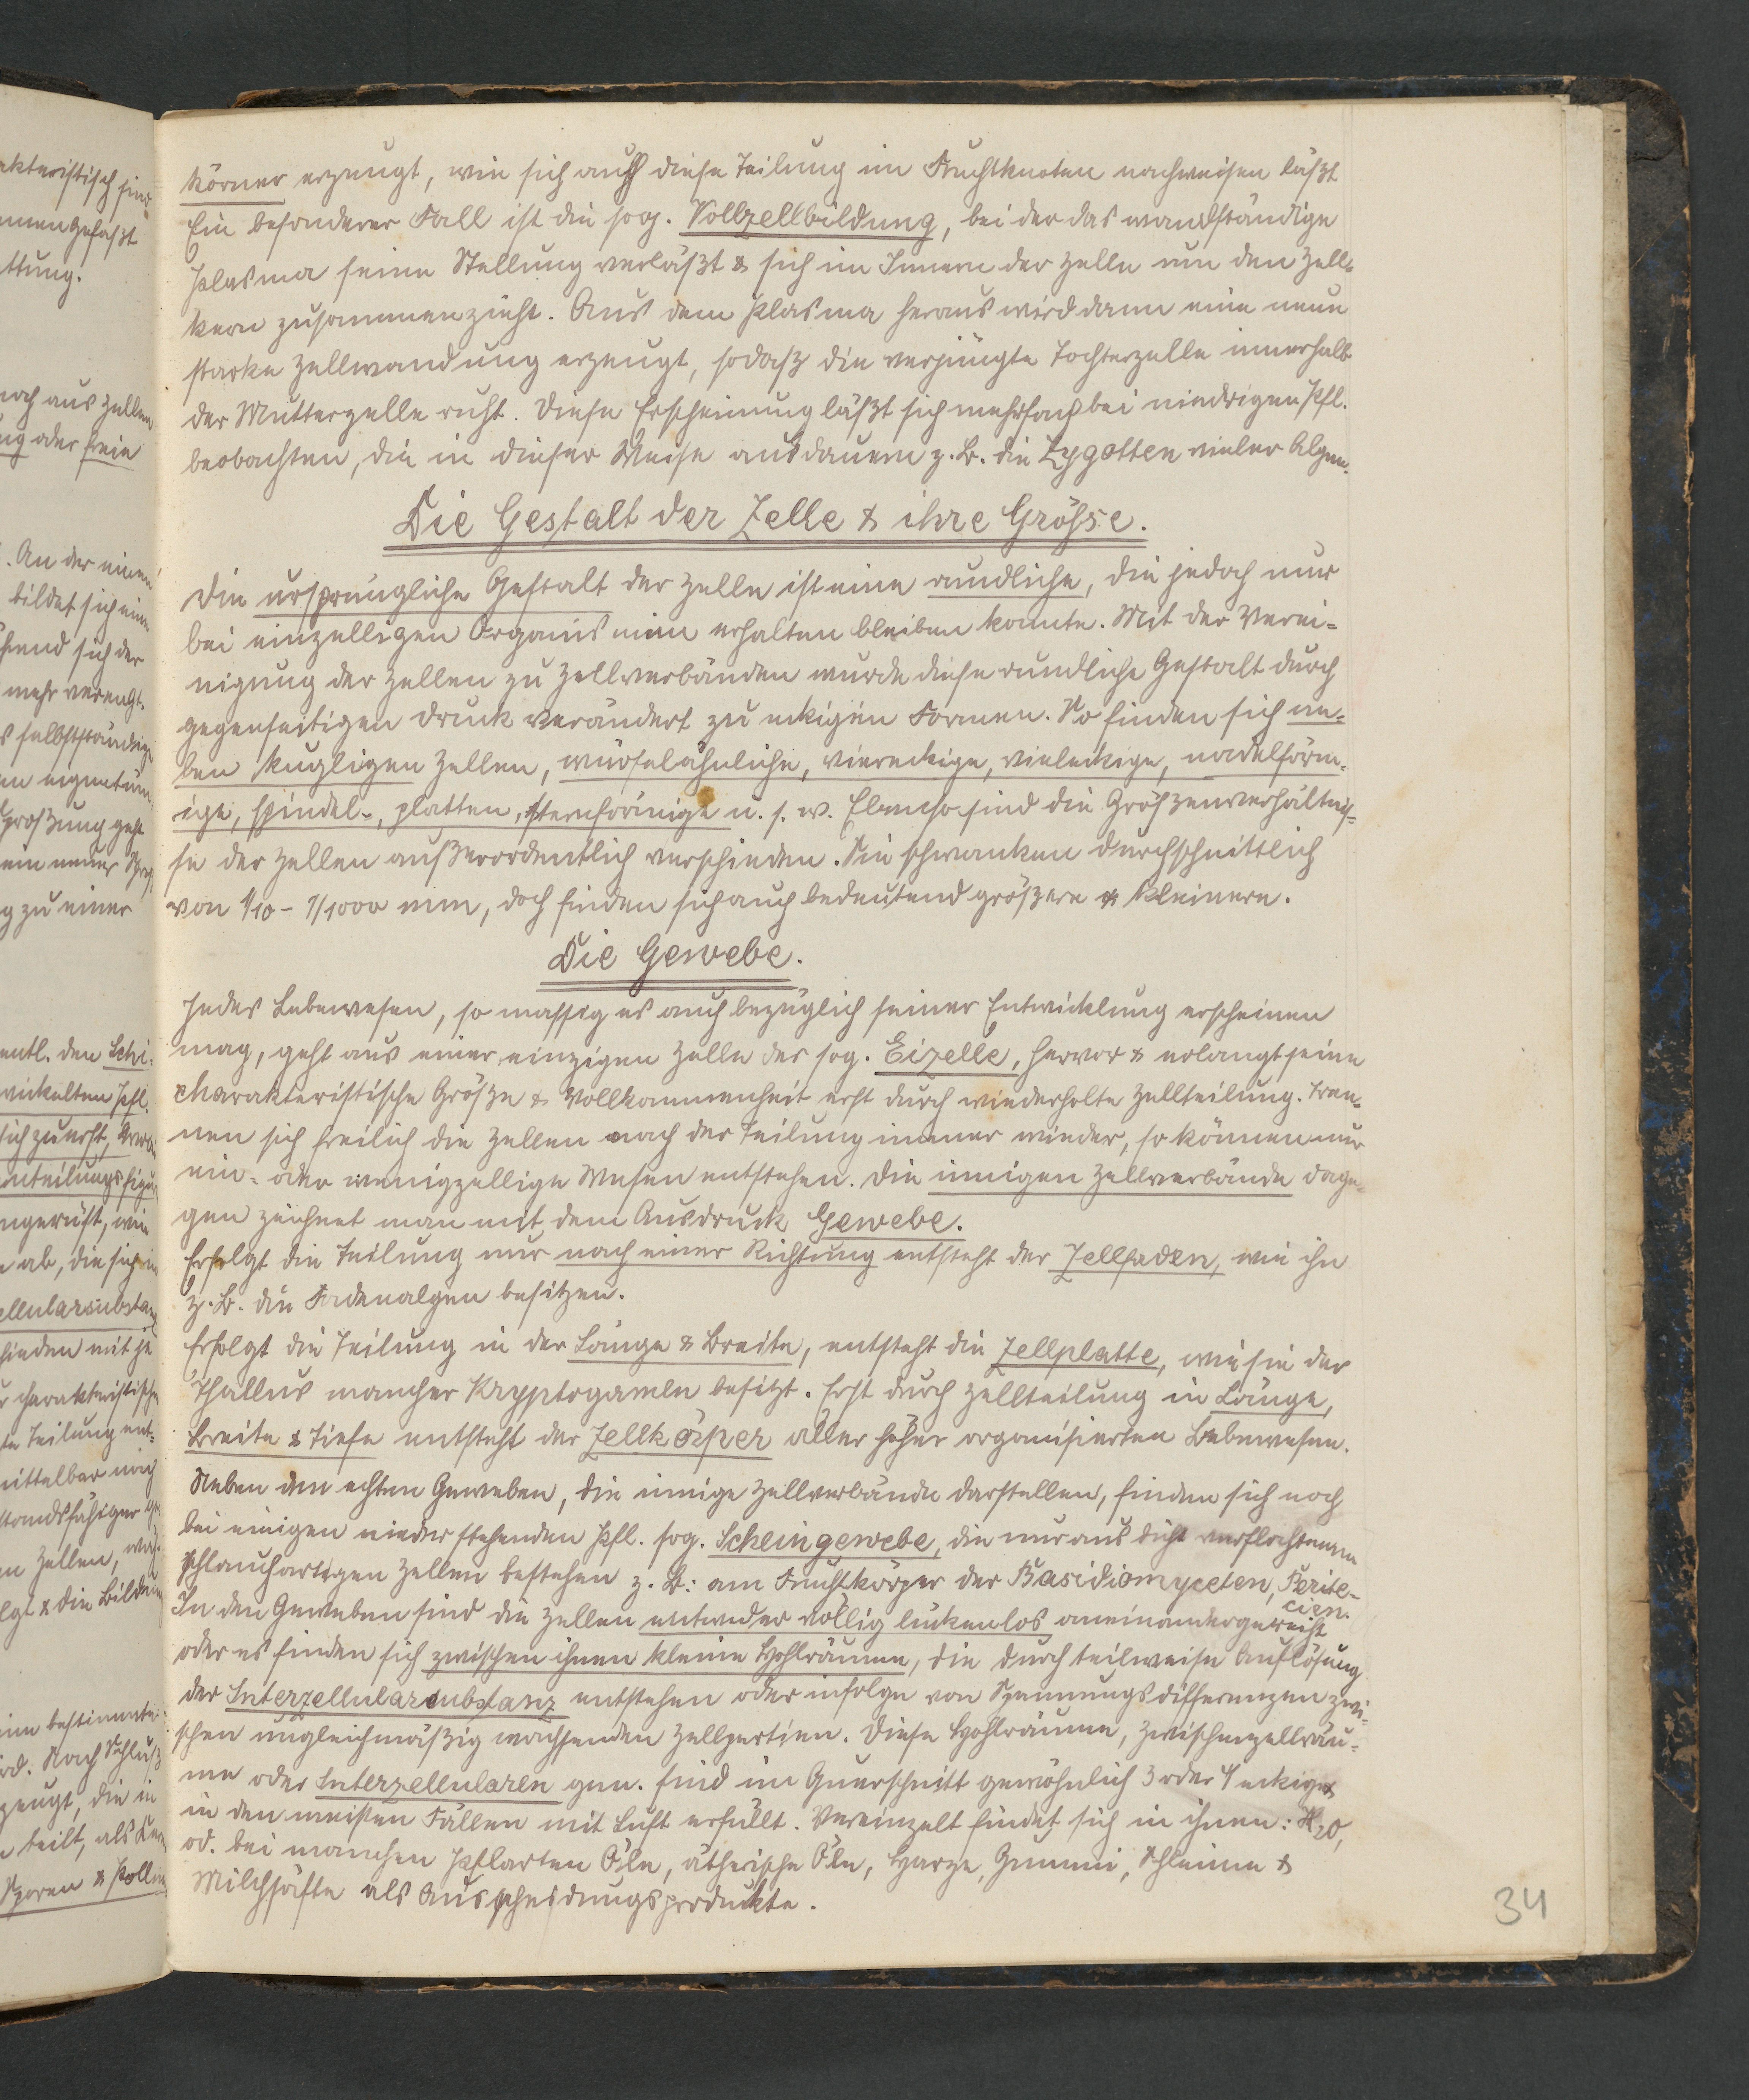 körner erzeugt, wie sich auch diese Teilung im Fruchtknoten nachweisen läßt
Ein besonderer Fall ist die sog. Vollzellbildung, bei der das wandständige
Plasma seine Stellung verläßt & sich im Innern der Zelle um den Zell-
kern zusammenzieht. Aus dem Plasma heraus wird dann eine neue
starke Zellwandung erzeugt, sodaß die verjüngte Tochterzelle innerhalb
der Mutterzelle ruht. Diese Erscheinung läßt sich mehrfach bei niedrigen Pfl.
beobachten, die in dieser Weise ausdauern z. B. die Zygotten vieler Algen.
Die Gestalt der Zelle & ihre Größse.
Die ursprüngliche Gestalt der Zelle ist eine rundliche, die jedoch nur
bei einzelligen Organismen erhalten bleiben konnte. Mit der Verei-
nigung der Zellen zu Zellverbänden wurde diese rundliche Gestalt durch
gegenseitigen Druck verändert zu eckigen Formen. So finden sich ne-
ben kugligen Zellen, würfelähnliche, viereckige, vieleckige, nadelförm-
ige, spindel-, platten, sternförmige u. s. w. Ebenso sind die Größenverhältnis-
se der Zellen außerordentlich verschieden. Sie schwanken durchschnittlich
von 1/10 - 1/1000 mm, doch finden sich auch bedeutend größere & kleinere.
Die Gewebe.
Jedes Lebewesen, so massig es auch bezüglich seiner Entwicklung erscheinen
mag, geht aus einer einzigen Zelle der sog. Eizelle, hervor & erlangt seine
charakteristische Größe & Vollkommenheit erst durch wiederholte Zellteilung. Tren-
nen sich freilich die Zellen nach der Teilung immer wieder, so können nur
ein- oder wenigzellige Wesen entstehen. Die innigen Zellverbände dage-
gen zeichnet man mit dem Ausdruck Gewebe.
Erfolgt die Teilung nur nach einer Richtung entsteht der Zellfaden, wie ihn
z. B. die Fadenalgen besitzen.
Erfolgt die Teilung in der Länge & Breite, entsteht die Zellplatte, wie sie der
Thallus mancher Kryptogamen besitzt. Erst durch Zellteilung in Länge,
Breite & Tiefe entsteht der Zellkörper aller höher organisierten Lebewesen.
Neben den echten Geweben, die innige Zellverbände darstellen, finden sich noch
bei einigen niederstehenden Pfl. sog. Scheingewebe, die nur aus dicht verflochtenen
schlauchartigen Zellen bestehen z. B.: am Fruchtkörper der Basidiomyceten, Perite-
cien.
In den Geweben sind die Zellen entweder völlig lückenlos aneinandergereiht
oder es finden sich zwischen ihnen kleine Hohlräume, die durch teilweise Auflösung
der Interzellularsubstanz entstehen oder infolge von Spannungsdifferenzen zwi-
schen ungleichmäßig wachsenden Zellpartien. Diese Hohlräume, Zwischenzellräu-
me oder Interzellularen gen. sind im Querschnitt gewöhnlich 3 oder 4 eckig &
in den meisten Fällen mit Luft erfüllt. Vereinzelt findet sich in ihnen: H2O,
od. bei manchen Pflarten Öle, ätherische Öle, Harze, Gummi, Schleime &
Milchsäfte als Ausscheidungsprodukte.
34